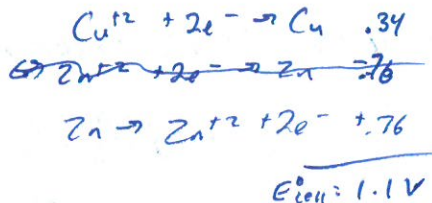 Cu+2 + 2e- → Cu .34
Zn+2 + 2e- → Zn -.76
Zn → Zn+2 + 2e- +.76
E°cell = 1.1 V